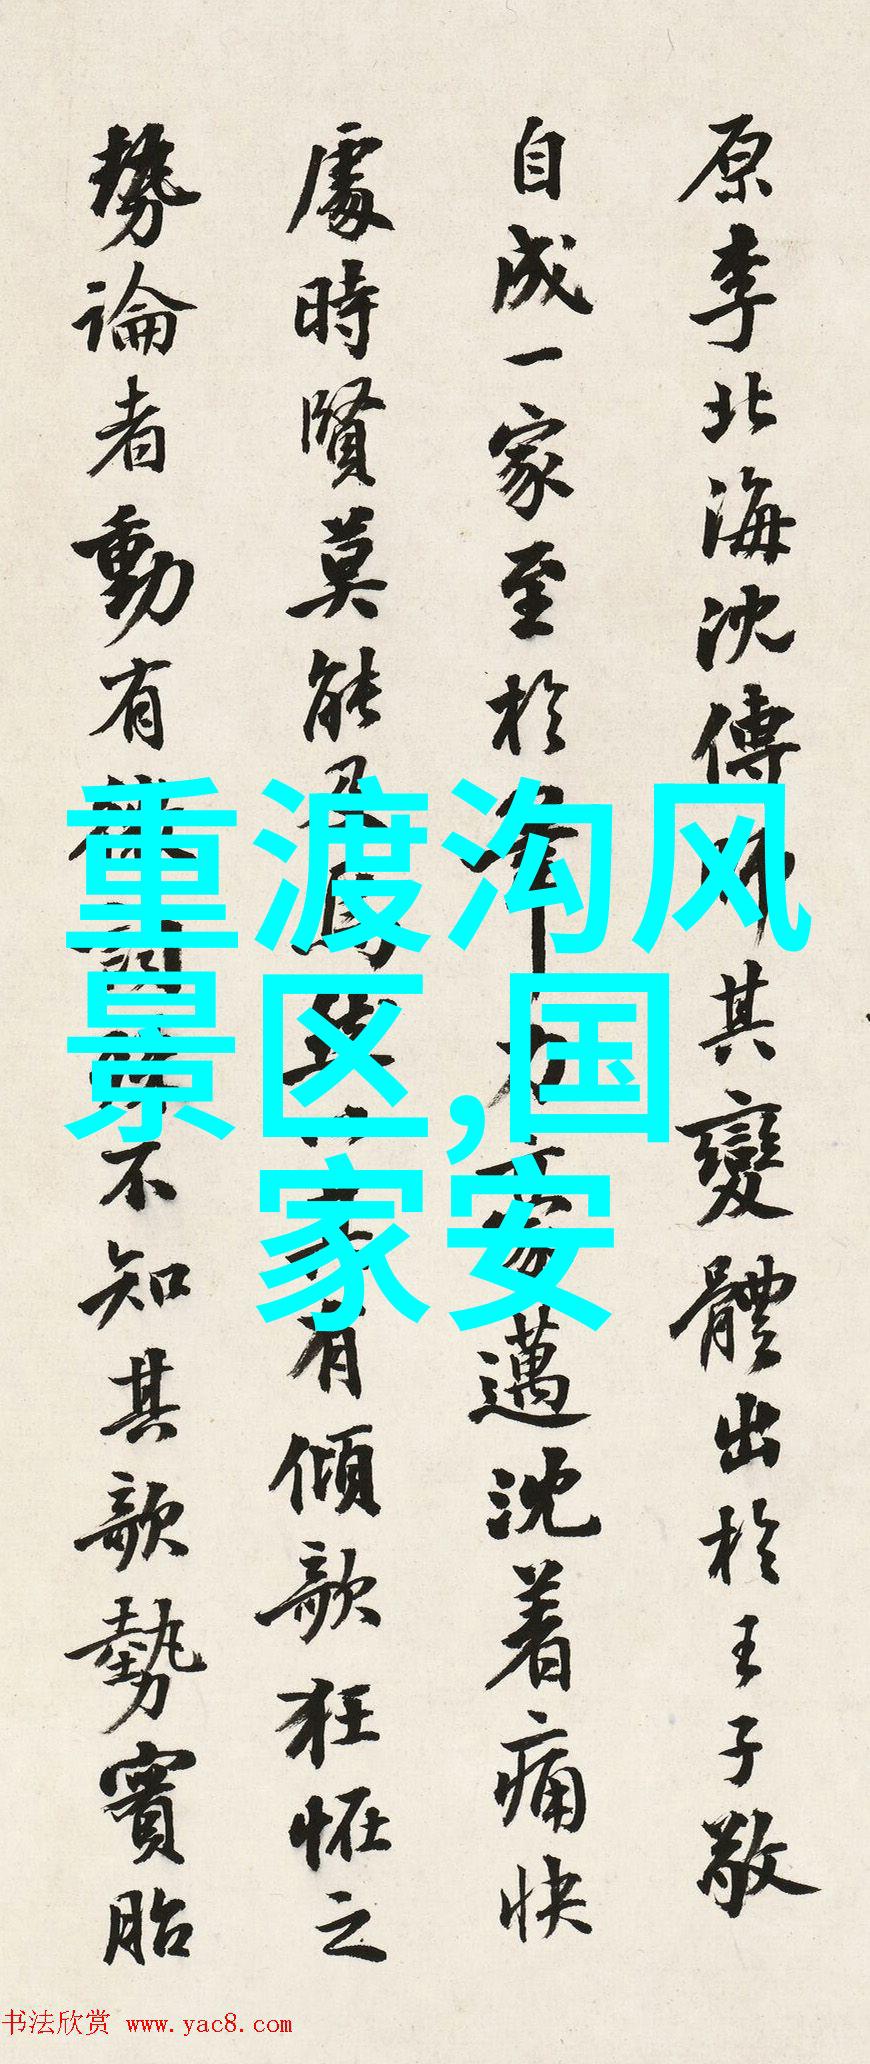 原李北海沈傳師其變體出於王子敬
自成一家至於筆力豪邁沈着痛快
處時賢莫能及焉其有傾欹狂怪之
勢論者動有微詞殊不知其欹勢實胎
重渡沟风
景区,国
家安
书法欣赏 www.yac8.com